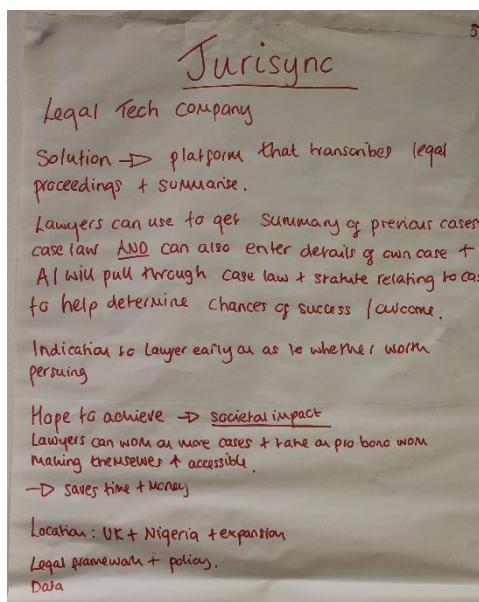 5
Jurisync
Legal Tech company
Solution → platform that transcribes legal
proceedings + summarise.
Lawyers can use to get summary of previous cases
case law AND can also enter details of own case +
AI will pull through case law + statute relating to cas
to help determine chances of success / outcome.
Indication to Lawyer early on as to whether worth
persuing
Hope to achieve → societal impact
Lawyers can work on more cases + take on pro bono work
making themselves ↑ accessible.
→ saves time + money
Location: UK + Nigeria + expansion
Legal framework + policy.
Data